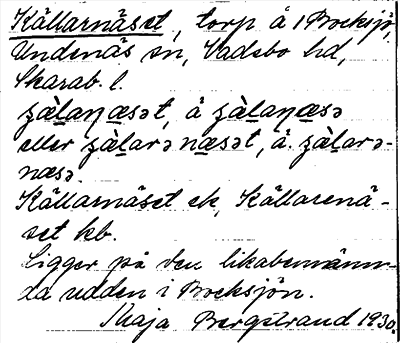 Källarnäset, torp å 1 Bocksjö,
Undenäs sn, Vadsbo hd,
Skarab. l.
ʒàlaŋæsət, å ʒàlaŋæsə
eller ʒàlarə næsət, å ʒàlarə-
næsə.
Källarnäset ek, Källarenä-
set kb.
Ligger på den likabenämn-
da udden i Bocksjön.
Maja Bergstrand 1930.